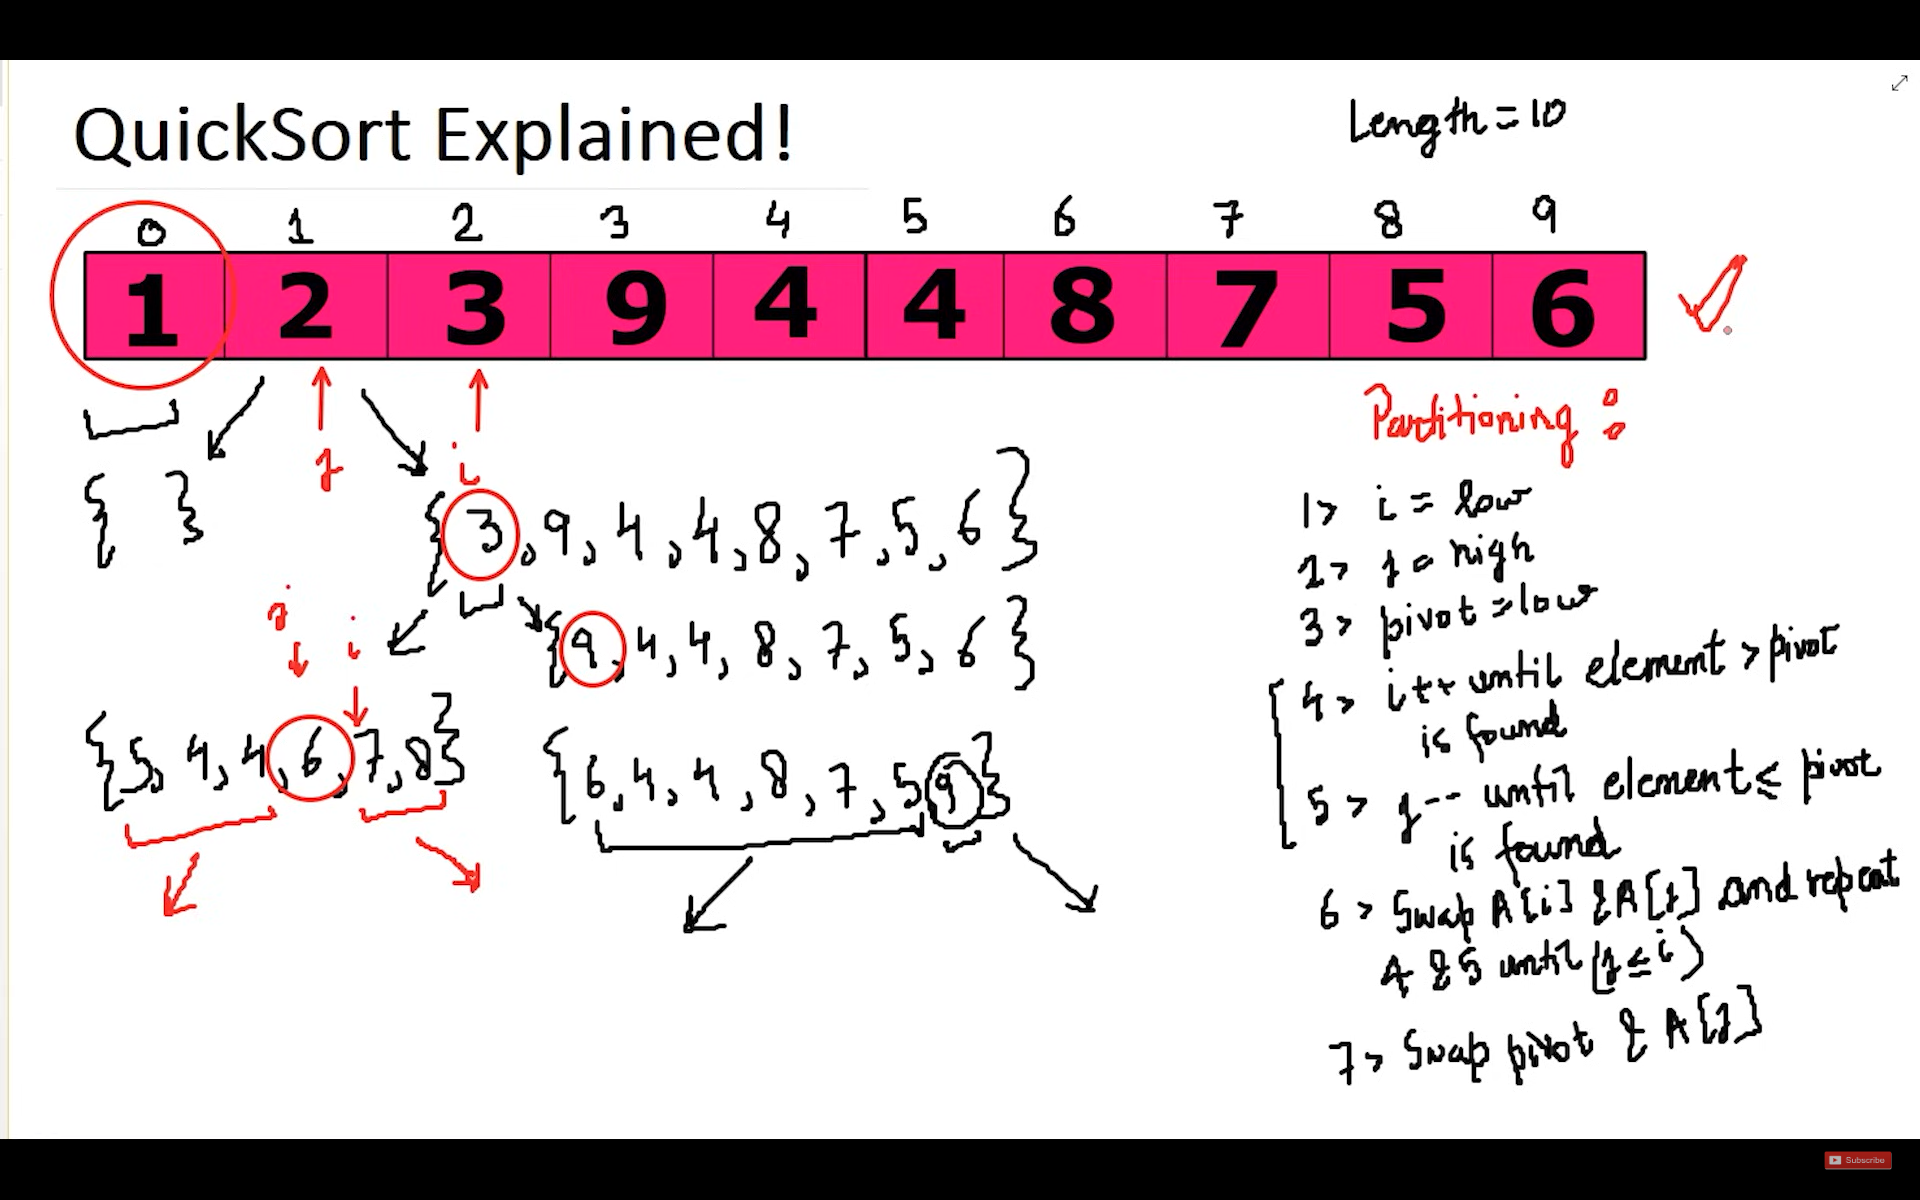 QuickSort Explained!
Length = 10
0 1 2 3 4 5 6 7 8 9
1 2 3 9 4 4 8 7 5 6
Partitioning :
j
i
{ }
{3, 9, 4, 4, 8, 7, 5, 6}
j i
{9, 4, 4, 8, 7, 5, 6}
{5, 4, 4, 6, 7, 8}
{6, 4, 4, 8, 7, 5 9}
1> i = low
2> j = high
3> pivot = low
4> i++ until element > pivot
is found
5> j-- until element ≤ pivot
is found
6> Swap A[i] & A[j] and repeat
4 & 5 until (j ≤ i)
7> Swap pivot & A[j]
Subscribe